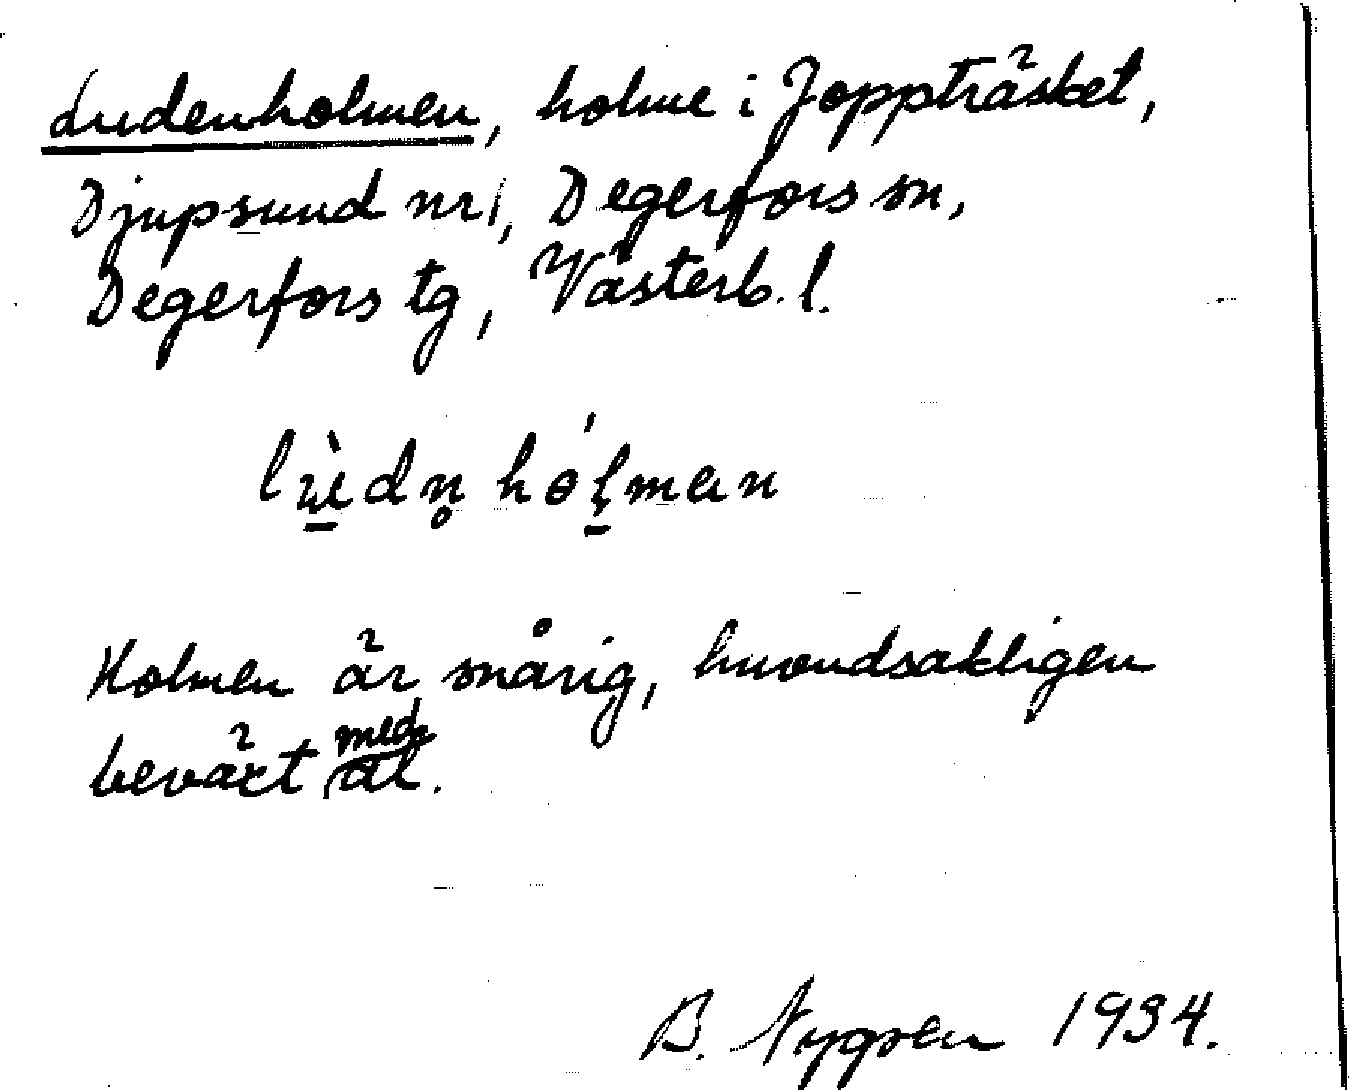 Ludenholmen, holme i Joppträsket,
Djupsund nr 1, Degerfors sn,
Degerfors tg, Västerb. l.
lu̠̇̀dn̥ hól̠man
Holmen är snårig, huvudsakligen
beväxt med al.
B. Nygren 1934.